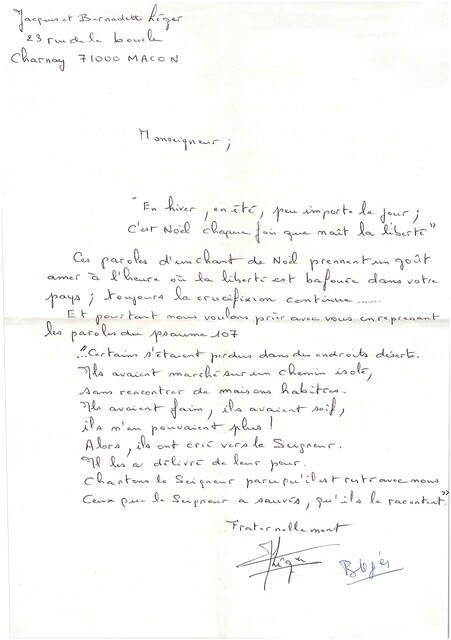 Jacques et Bernadette Léger
23 rue de la boucle
Charnay 71000 MACON
Monseigneur ;
"En hiver, en été, peu importe le jour ;
C'est Noël chaque fois que naît la liberté"
Ces paroles d'un chant de Noël prennent un goût
amer à l'heure où la liberté est bafouée dans votre
pays ; toujours la crucifixion continue ......
Et pourtant nous voulons prier avec vous en reprenant
les paroles du psaume 107
"Certains s'étaient perdus dans des endroits déserts.
Ils avaient marché sur un chemin isolé,
sans rencontrer de maisons habitées.
Ils avaient faim, ils avaient soif,
ils n'en pouvaient plus !
Alors, ils ont crié vers le Seigneur.
Il les a délivré de leur peur.
Chantons le Seigneur parce qu'il est resté avec nous
Ceux que le Seigneur a sauvés, qu'ils le racontent"
Fraternellement
Léger
BLéger